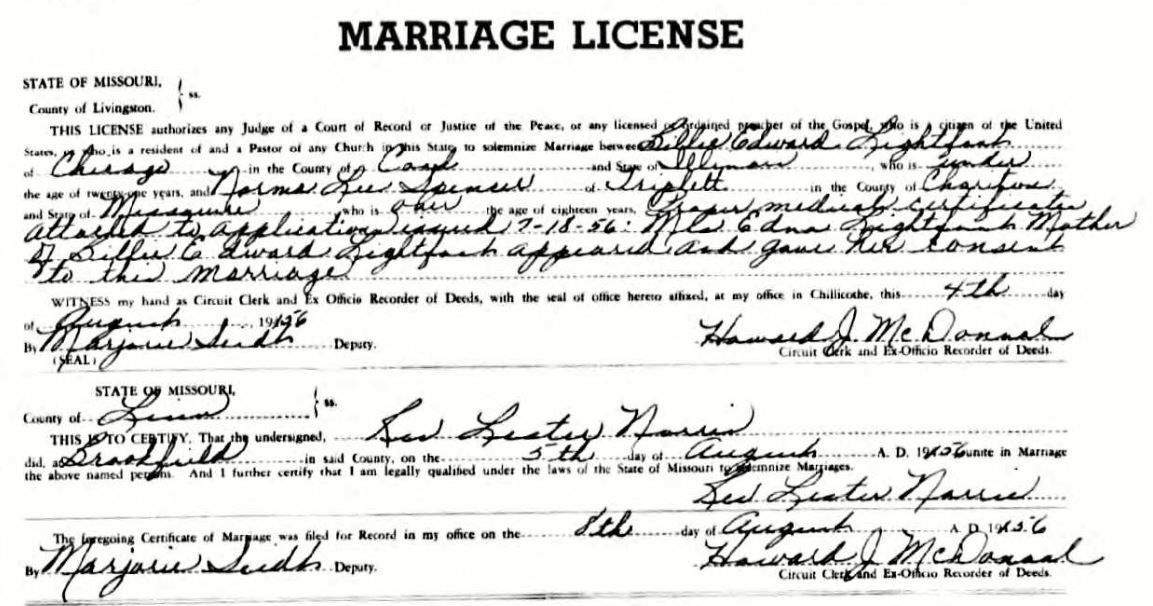 MARRIAGE LICENSE
STATE OF MISSOURI,
County of Livingston. } ss.
THIS LICENSE authorizes any Judge of a Court of Record or Justice of the Peace, or any licensed or ordained preacher of the Gospel, who is a citizen of the United
States, or who is a resident of and a Pastor of any Church in this State to solemnize Marriage between Billie Edward Lightfoot
of Chicago in the County of Cook and State of Illinois, who is under
the age of twenty-one years, and Norma Lee Spencer of Triplett in the County of Chariton
and State of Missouri who is over the age of eighteen years, Proper medical certificates
attached to application issued 7-18-56. Mrs Edna Lightfoot Mother
of Billie Edward Lightfoot appeared and gave her consent
to this marriage
WITNESS my hand as Circuit Clerk and Ex Officio Recorder of Deeds, with the seal of office hereto affixed, at my office in Chillicothe, this 4th day
of August, 1956
By Marjorie Deputy. Howard J. McDonnal
(SEAL) Circuit Clerk and Ex-Officio Recorder of Deeds.
STATE OF MISSOURI,
County of Linn } ss.
THIS IS TO CERTIFY, That the undersigned, Rev Lester Norris
did, at Brookfield in said County, on the 5th day of August A. D. 1956 unite in Marriage
the above named persons. And I further certify that I am legally qualified under the laws of the State of Missouri to solemnize Marriages.
Rev Lester Norris
The foregoing Certificate of Marriage was filed for Record in my office on the 8th day of August A. D. 1956
By Marjorie Deputy. Howard J McDonnal
Circuit Clerk and Ex-Officio Recorder of Deeds.